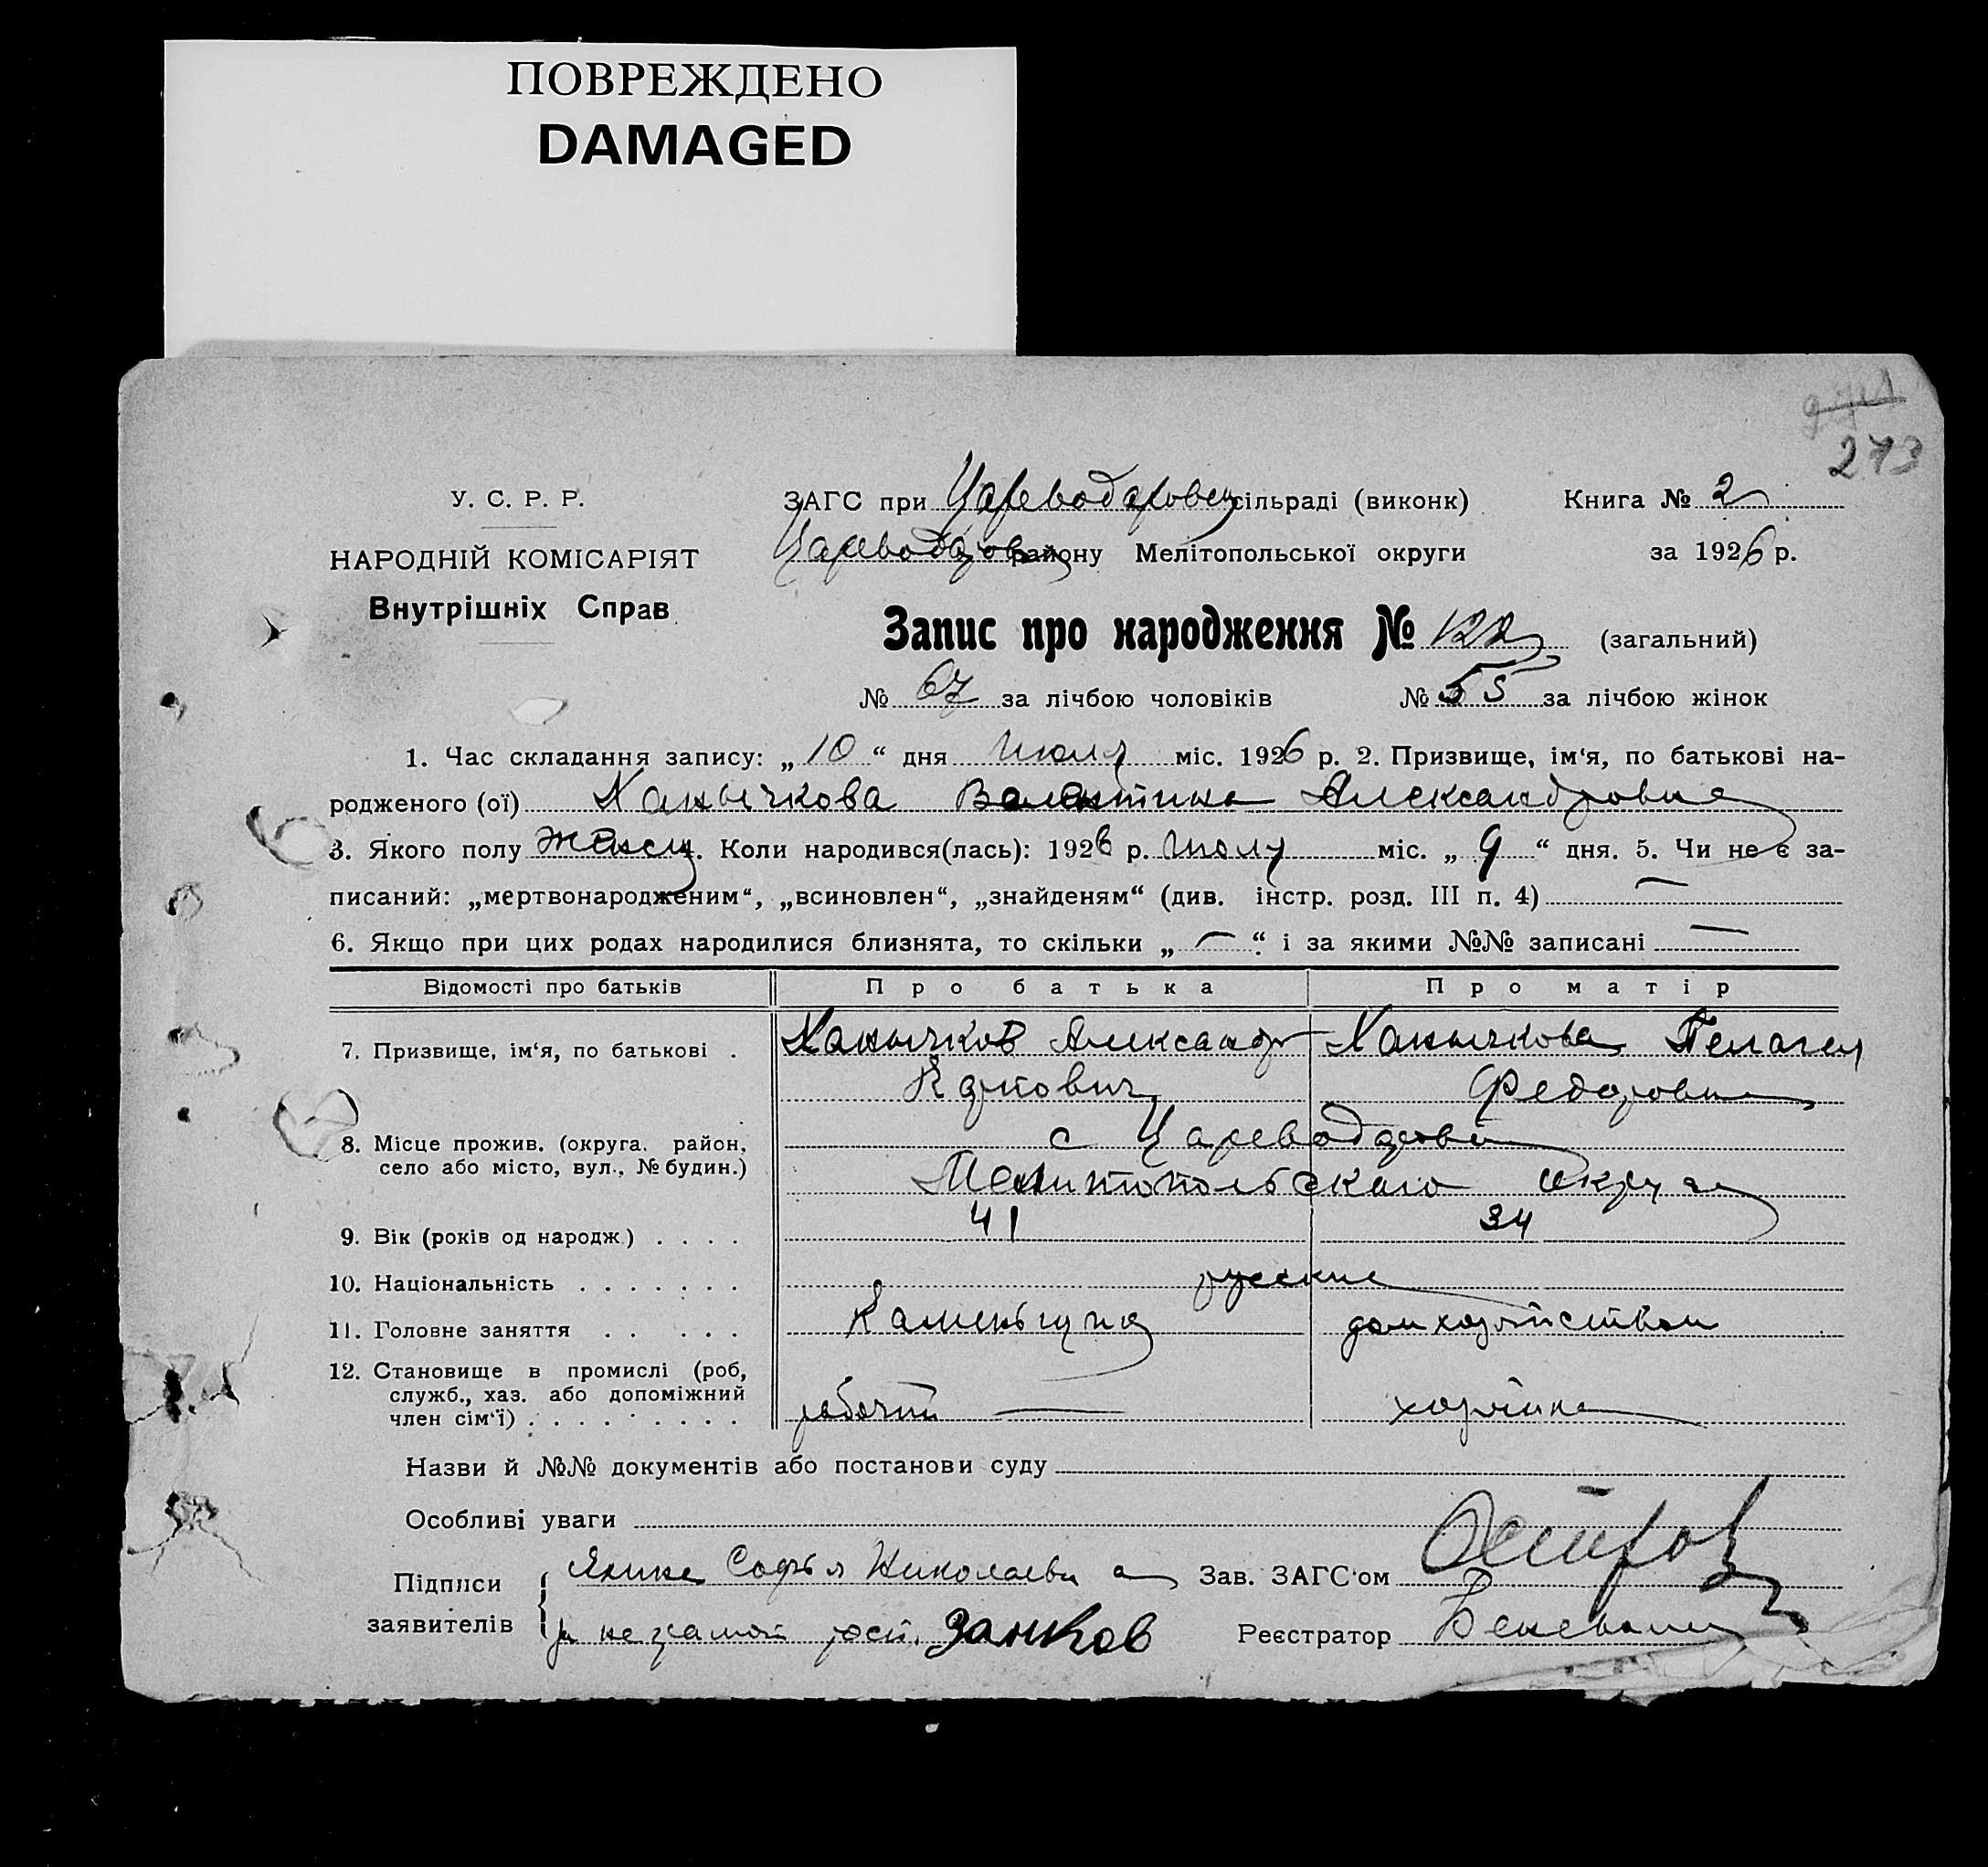 ПОВРЕЖДЕНО
DAMAGED
273
У. С. Р. Р.
ЗАГС при Цареводаровск сільраді (виконк) Книга № 2
НАРОДНІЙ КОМІСАРІЯТ
Цареводаров району Мелітопольської округи за 1926 р.
Внутрішніх Справ
Запис про народження № 122 (загальний)
№ 67 за лічбою чоловіків № 55 за лічбою жінок
1. Час складання запису: „ 10 “ дня Июля міс. 1926 р. 2. Призвище, ім‘я, по батькові на-
родженого (ої) Ханычкова Валентина Александровна
3. Якого полу женск. Коли народився(лась): 1926 р. Июля міс. „ 9 “ дня. 5. Чи не є за-
писаний: „мертвонародженим“, „всиновлен“, „знайденям“ (див. інстр. розд. III п. 4) —
6. Якщо при цих родах народилися близнята, то скільки „ — “ і за якими №№ записані —
Відомості про батьків Про батька Про матір
7. Призвище, ім‘я, по батькові . Ханычков Александр Ханычкова Пелагея
Карпович Федоровна
8. Місце прожив. (округа. район, с Цареводаровка
село або місто, вул., № будин.) Мелитопольскаго округа
9. Вік (років од народж.) . . . . 41 34
10. Національність . . . . . . . русские
11. Головне заняття . . . . . Каменьщик домхозяйством
12. Становище в промислі (роб,
служб., хаз. або допоміжний
член сім‘ї) . . . . . . . . . рабочий — хозяйка
Назви й №№ документів або постанови суду
Особливі уваги
Підписи заявителів { Софья Николаевна Зав. ЗАГС‘ом
за неграмот росп. Занков Реєстратор